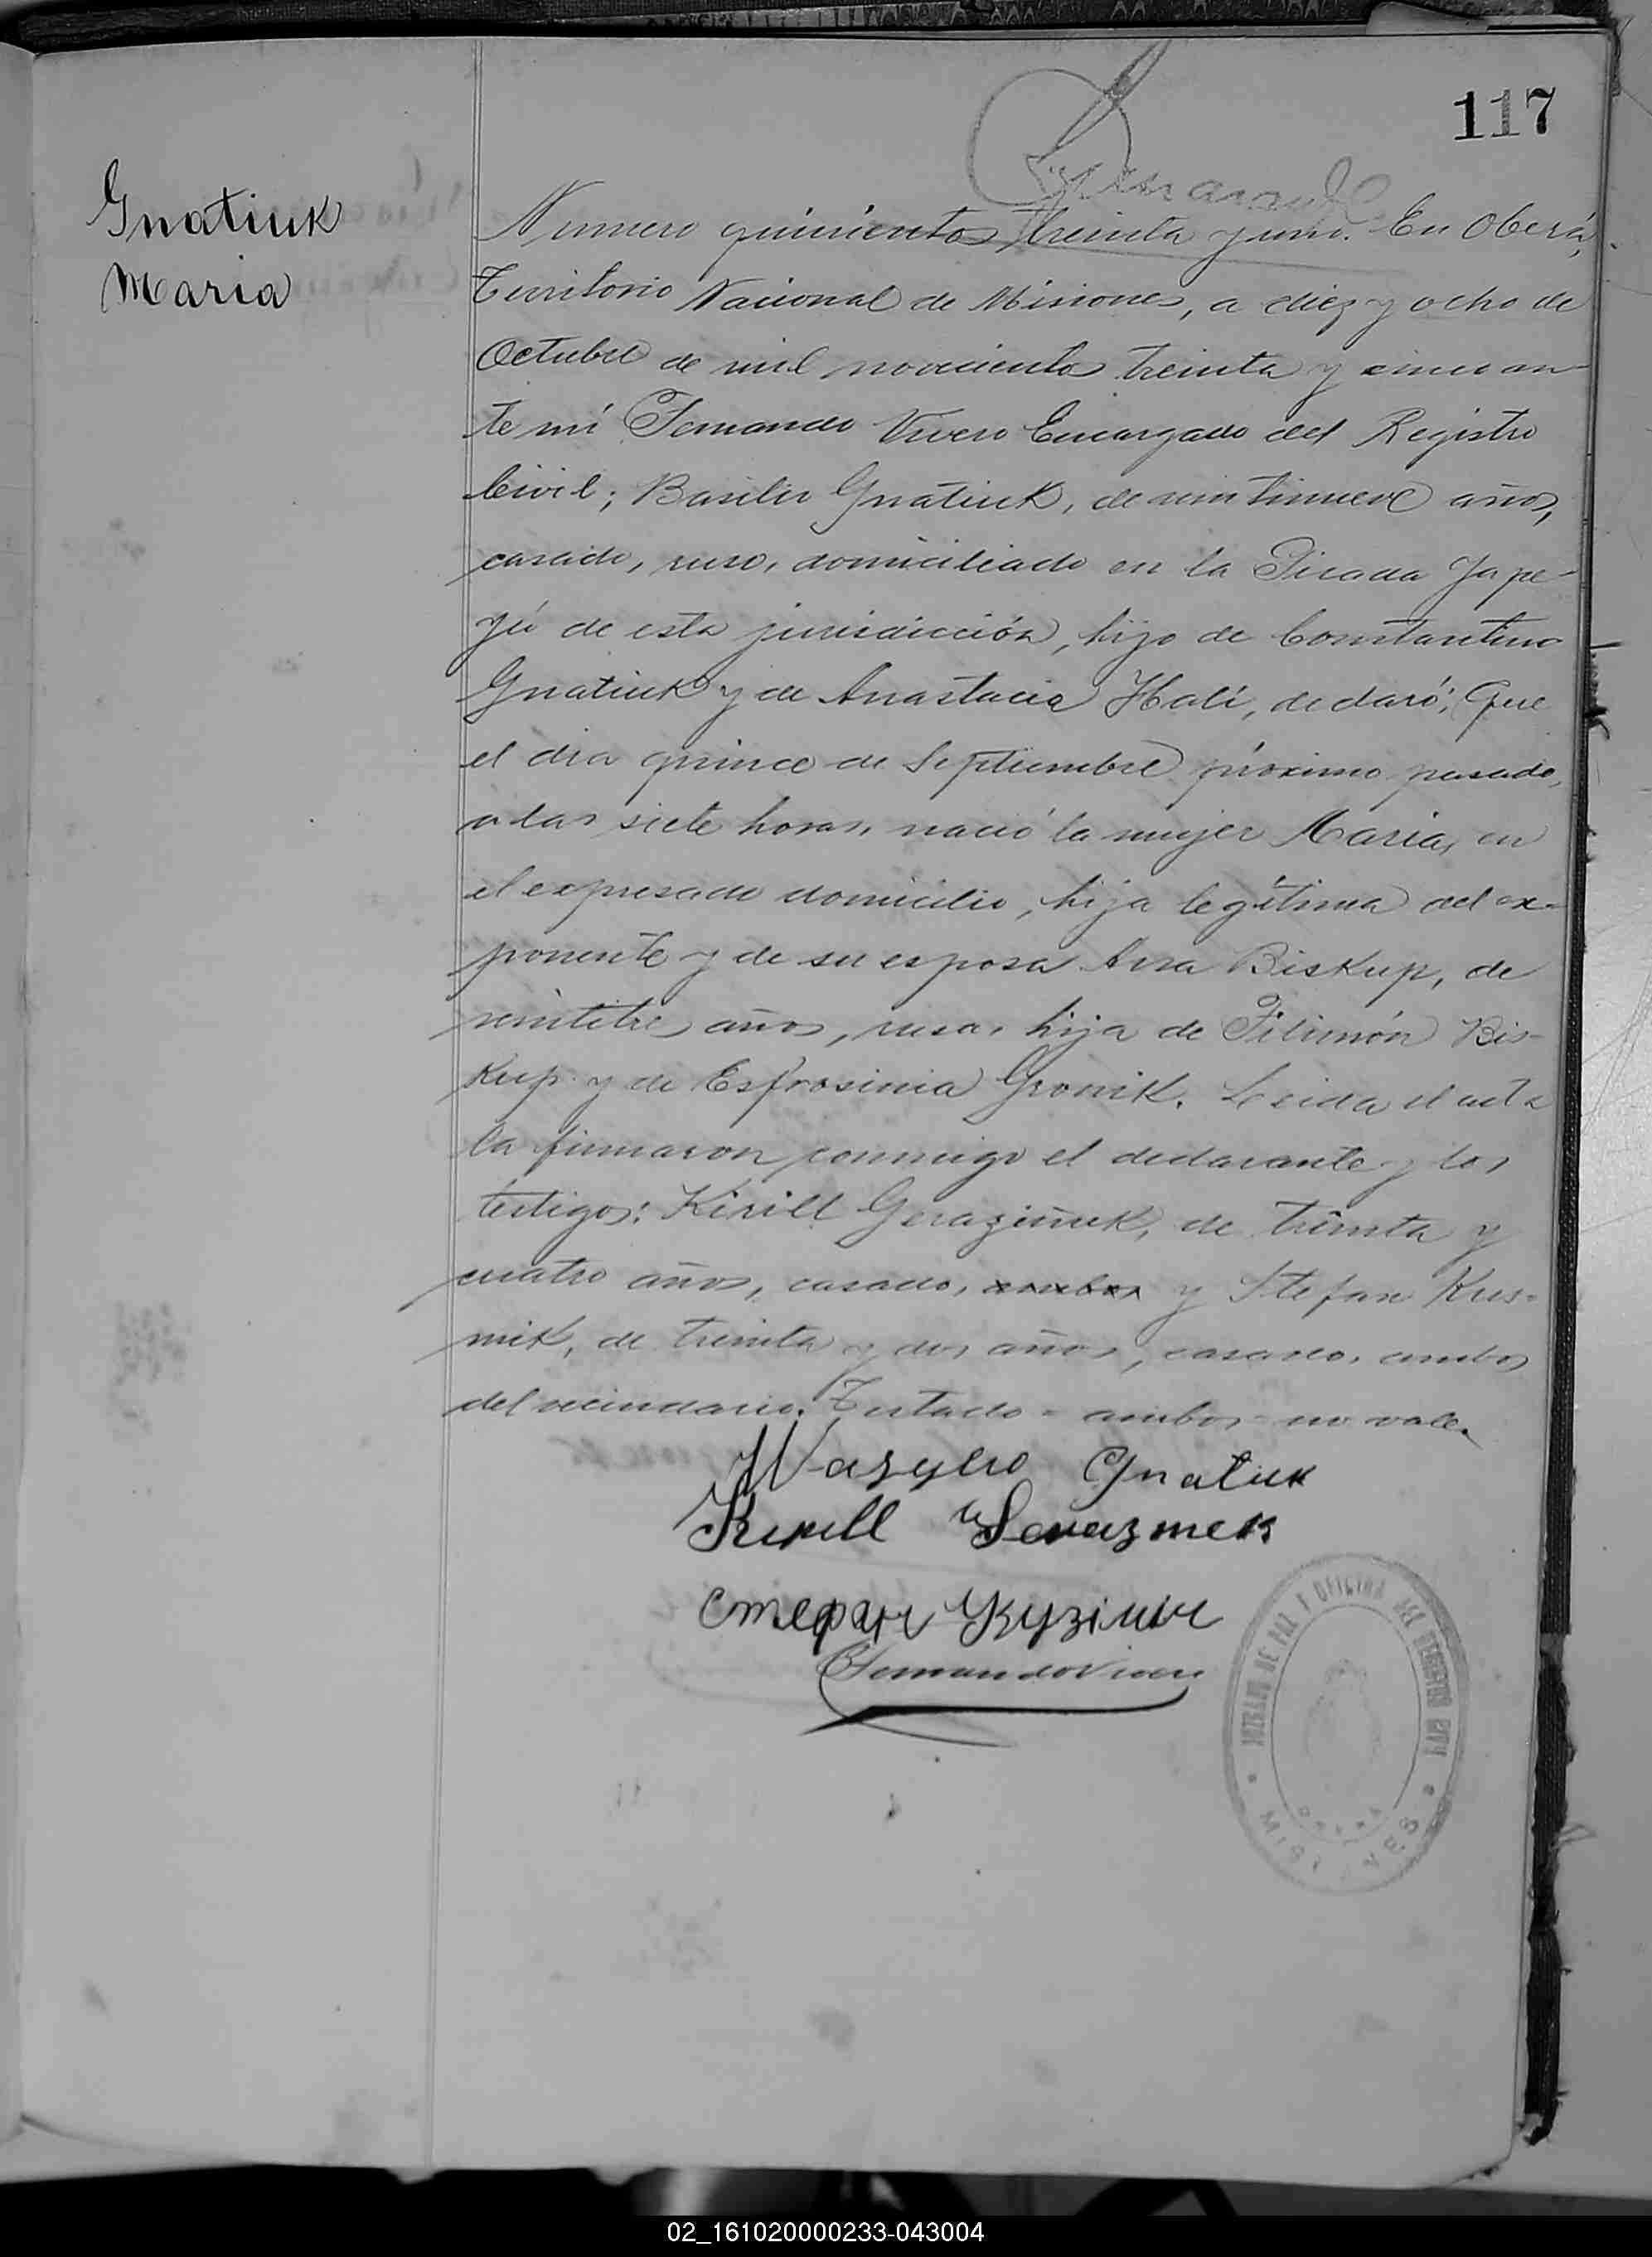 117
Gnatiuk
Maria
Numero quinientos treinta y uno. En Oberá,
Territorio Nacional de Misiones, a diez y ocho de
Octubre de mil novecientos treinta y cinco an-
te mí Fernando Vivero Encargado del Registro
Civil; Basilio Gnatiuk, de veintinueve años,
casado, ruso, domiciliado en la Picada Yape-
yú de esta jurisdicción, hijo de Constantino
Gnatiuk y de Anastacia Hali, declaró; Que
el dia quince de Septiembre próximo pasado,
a las siete horas, nació la mujer Maria, en
el expresado domicilio, hija legítima del ex-
ponente y de su esposa Ana Biskup, de
veintitres años, rusa, hija de Filimón Bis-
kup y de Esfrosinia Gronik. Leida el acta
la firmaron conmigo el declarante y los
testigos: Kirill Geraziñuk, de treinta y
cuatro años, casado, ambos y Stefan Kus-
mik, de treinta y dos años, casado, ambos
del vecindario. Testado = ambos = no vale.
Wasyleo Gnatiuk
Kirill
Стефан
Fernando Vivero
JUZGADO DE PAZ Y OFICINA DEL REGISTRO CIVIL
OBERA
MISIONES
02_161020000233-043004